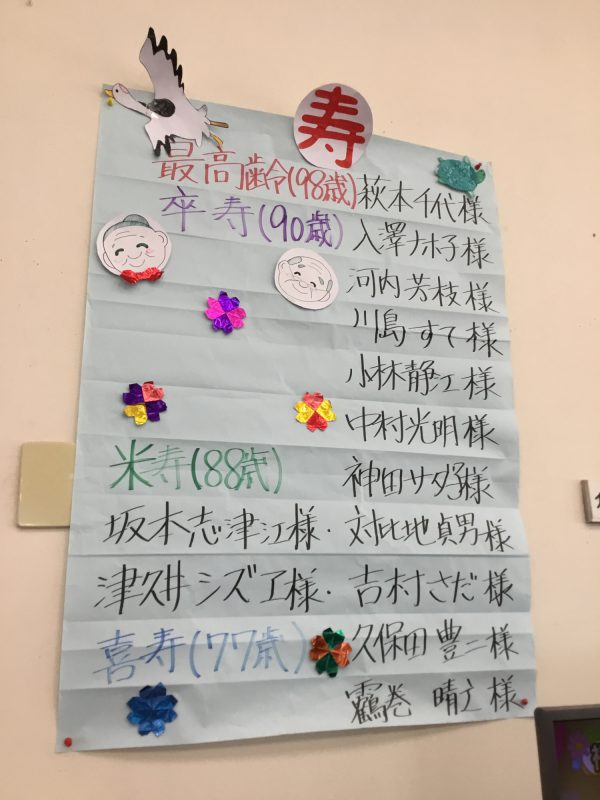 寿
最高齢(98歳) 萩本千代様
卒寿(90歳) 入澤ナホ子様
河内芳枝様
川島すて様
小林静江様
中村光明様
米寿(88歳) 神田サダ子様
坂本志津江様・対比地貞男様
津久井シズヱ様・吉村さだ様
喜寿(77歳) 久保田豊二様
靏巻 晴立様